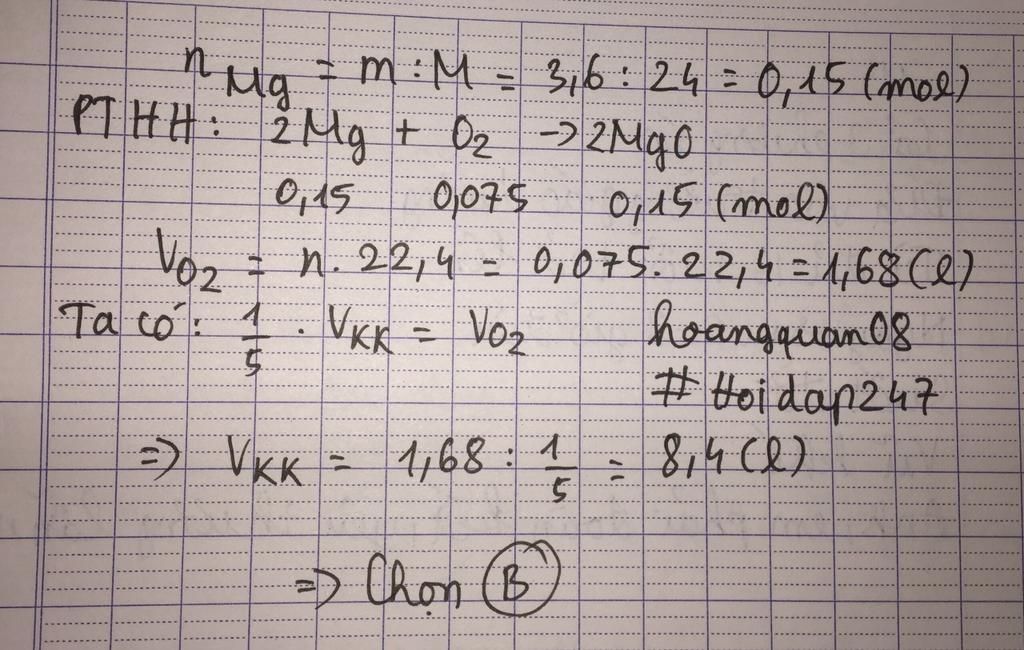 nMg = m : M = 3,6 : 24 = 0,15 (mol)
PTHH: 2Mg + O2 -> 2MgO
0,15 0,075 0,15 (mol)
VO2 = n. 22,4 = 0,075. 22,4 = 1,68 (l)
Ta có: 1/5 . VKK = VO2 hoangquan08
# Hoidap247
=> VKK = 1,68 : 1/5 = 8,4 (l)
=> Chọn B